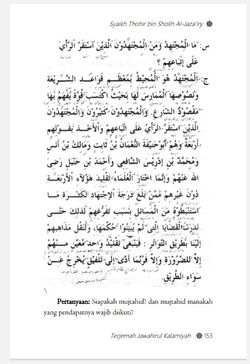 Syaikh Thohir bin Sholih Al-Jaza'iry
س: مَا الْمُجْتَهِدُ وَمَنِ الْمُجْتَهِدُوْنَ الَّذِيْنَ اسْتَقَرَّ الرَّأْيُ
عَلَى اتِّبَاعِهِمْ؟
ج: الْمُجْتَهِدُ هُوَ الْمُحِيْطُ بِمُعْظَمِ قَوَاعِدِ الشَّرِيْعَةِ
وَنُصُوْصِهَا الْمُمَارِسُ لَهَا بِحَيْثُ اكْتَسَبَ قُوَّةً يَفْهَمُ بِهَا
مَقْصُوْدَ الشَّارِعِ. وَالْمُجْتَهِدُوْنَ كَثِيْرُوْنَ وَالْمُجْتَهِدُوْنَ
الَّذِيْنَ اسْتَقَرَّ الرَّأْيُ عَلَى اتِّبَاعِهِمْ وَالْأَخْذِ بِقَوْلِهِمْ
أَرْبَعَةٌ وَهُمْ أَبُوْ حَنِيْفَةَ النُّعْمَانُ بْنُ ثَابِتٍ وَمَالِكُ بْنُ أَنَسٍ
وَمُحَمَّدُ بْنُ إِدْرِيْسَ الشَّافِعِي وَأَحْمَدُ بْنُ حَنْبَلٍ رَضِيَ
اللهُ عَنْهُمْ وَإِنَّمَا اخْتَارَ الْعُلَمَاءُ تَقْلِيْدَ هَؤُلَاءِ الْأَرْبَعَةِ
دُوْنَ غَيْرِهِمْ مِمَّنْ بَلَغَ دَرَجَةَ الِاجْتِهَادِ لِكَثْرَةِ مَا
اسْتَنْبَطُوْهُ مِنَ الْمَسَائِلِ بِسَبَبِ تَفَرُّغِهِمْ لِذَلِكَ حَتَّى
نَدَرَتِ الْقَضَايَا الَّتِي لَمْ يُبَيِّنُوْا حُكْمَهَا، وَلِنَقْلِ مَذَاهِبِهِمْ
إِلَيْنَا بِطَرِيْقِ التَّوَاتُرِ؛ فَيَنْبَغِيْ تَقْلِيْدُ وَاحِدٍ مُعَيَّنٍ مِنْهُمْ
إِلَّا لِلضَّرُوْرَةِ وَإِلَّا فَرُبَّمَا أَدَّى إِلَى تَلْفِيْقٍ يُخْرِجُ عَنْ
سَوَاءِ الطَّرِيْقِ.
Pertanyaan: Siapakah mujtahid? dan mujtahid manakah
yang pendapatnya wajib diikuti?
Terjemah Jawahirul Kalamiyah 153